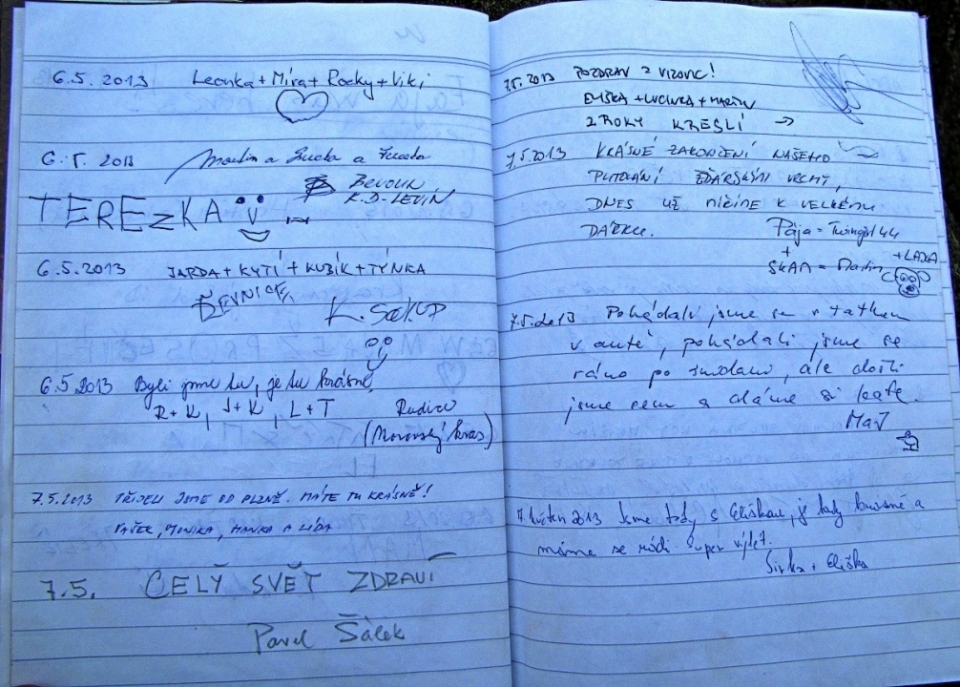 6.5. 2013 Leonka + Míra + Rocky + Viki
6.5. 2013 Martin a a
BEROUN
K.D-LEVÍN
TEREzKA
6.5. 2013 JARDA + KYTÍ + KUBÍK + TÝNKA
ŘEVNICE
6.5 2013 Byli jsme tu, je tu krásně,
R+K, J+K, L+T Rudice
(Moravský kras)
7.5.2013 PŘIJELI JSME OD PLZNĚ. MÁTE TU KRÁSNĚ!
VAŠEK, MONIKA, HANKA A LÍDA
7.5. CELÝ SVĚT ZDRAVÍ
Pavel Šálek
7.5. 2013 POZDRAV Z VIZOVIC!
ELIŠKA + LUCINKA + MARTIN
2 ROKY KRESLÍ →
7.5.2013 KRÁSNÉ ZAKONČENÍ NAŠEHO
PUTOVÁNÍ ŽĎÁRSKÝMI VRCHY,
DNES UŽ MÍŘÍME K VELKÉMU
DÁŘKU. Pája = Twingo 44
+
SKAM = Martin + LAĎKA
7.5.2013 Pohádali jsme se s tatkem
v autě, pohádali jsme se
ráno po snídani, ale došli
jsme sem a dáme si kafe.
MaJ
7. květen 2013 Jsme tady s Eliškou, je tady krásně a
máme se rádi. Super výlet.
Sirka + Eliška